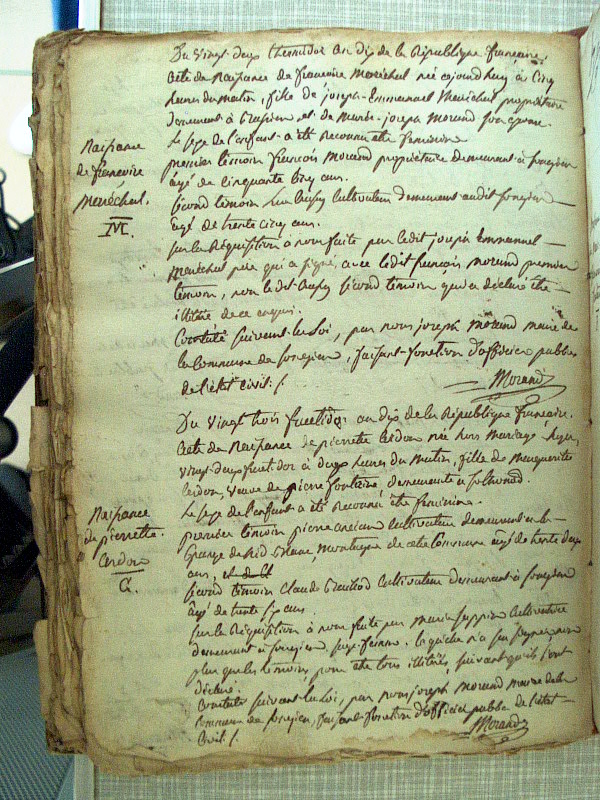 Du vingt deux thermidor an dix de la République française,
acte de Naissance de francoise Maréchal née cejourdhuy à Cinq
heures du matin, fille de joseph-Emmanuel Maréchal propriétaire
demeurant à et de Marie-joseph Morand son épouse.
Le sexe de l'enfant a été reconnu être feminin
premier témoin françois Morand propriétaire demeurant à
âgé de cinquante Cinq ans.
second témoin cultivateur demeurant audit
âgé de trente cinq ans.
sur la Réquisition à nous faite par ledit joseph Emmanuel
Maréchal père qui a signé, avec ledit françois morand premier
témoin, non ledit second témoin qui a déclaré être
illitéré de ce enquis.
Constaté suivant la Loi, par nous joseph Morand maire de
la Commune de, faisant fonction d'officier public
de l'état civil./.
Morand
Naissance
de francoise
Maréchal.
M.
Du vingt trois fructidor an dix de la République française.
acte de Naissance de pierrette Cerdon née hors mariage hyer
vingt deux fructidor à deux heures du matin, fille de Marguerite
Cerdon, veuve de pierre demeurante à
Le sexe de l'enfant a été reconnu être feminin.
premier témoin pierre cultivateur demeurant à la
Grange de montagne de cette Commune âgé de trente deux
ans,
second témoin Claude cultivateur demeurant à
âgé de trente ans.
sur la Réquisition à nous faite par Marie cultivatrice
demeurant à sage-femme. laquelle n'a su signer non
plus que les témoins, pour être tous illitérés, suivant qu'ils l'ont
déclaré.
Constaté suivant la Loi, par nous joseph Morand maire de la
Commune de, faisant fonction d'officier public de l'état
Civil./.
Morand
Naissance
de pierrette
Cerdon
C.